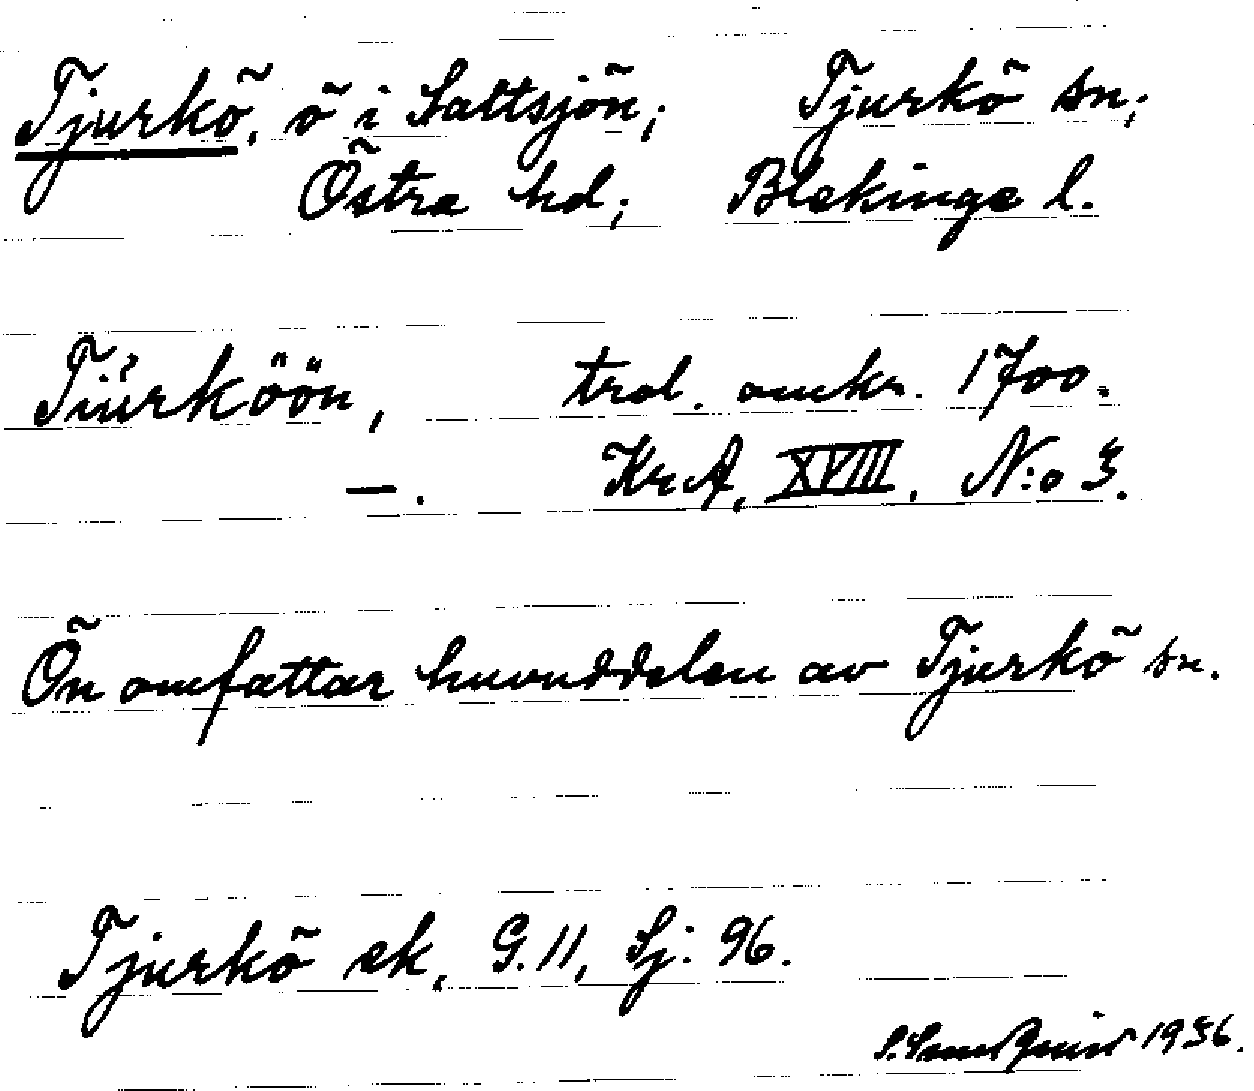 Tjurkö, ö i Saltsjön; Tjurkö sn;
Östra hd; Blekinge l.
Tiúrköön, trol. omkr. 1700.
—. KrA, XVIII. N:o 3.
Ön omfattar huvuddelen av Tjurkö sn.
Tjurkö ek, G.11, Sj: 96.
1956.